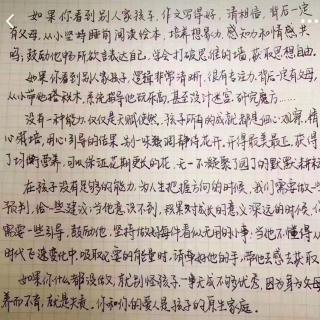 如果你看到别人家孩子,作文写得好,请相信,背后一定
有父母,从小坚持睡前阅读绘本,培养想象力,感知力和情感共
鸣;鼓励他畅所欲言表达自己,学会打破思维的墙,获取思想自由.
如果你看到别人家孩子,逻辑非常清晰,很有专注力,背后定有父母,
从小带他搭积木,系统指导他玩乐高,甚至设计迷宫,研究魔方……
没有一种能力,仅仅是天赋使然,孩子所有的成就都是细心观察,精
心栽培,用心引导的结果.别一味歆羡静待花开,开得最美最正,获得
了均衡营养,可以保证花期更长的花,无一不凝聚了园丁的默默耕耘
在孩子没有足够的能力,为人生把握方向的时候,我们需要做一些
预判,给一些建议;当他意识不到,效果对成长的意义深远的时候,
需要一些引导,鼓励他,坚持做好每件看似无用的小事;当他不懂得从
时代专速变化中,吸取必要的能量时,请牵好他的手,带他去感去获取
如果你什么都没做,就别怪孩子一事无成不够优秀,因为身为父母
养而不育,就是失责.你和你的爱人是孩子的原生家庭.